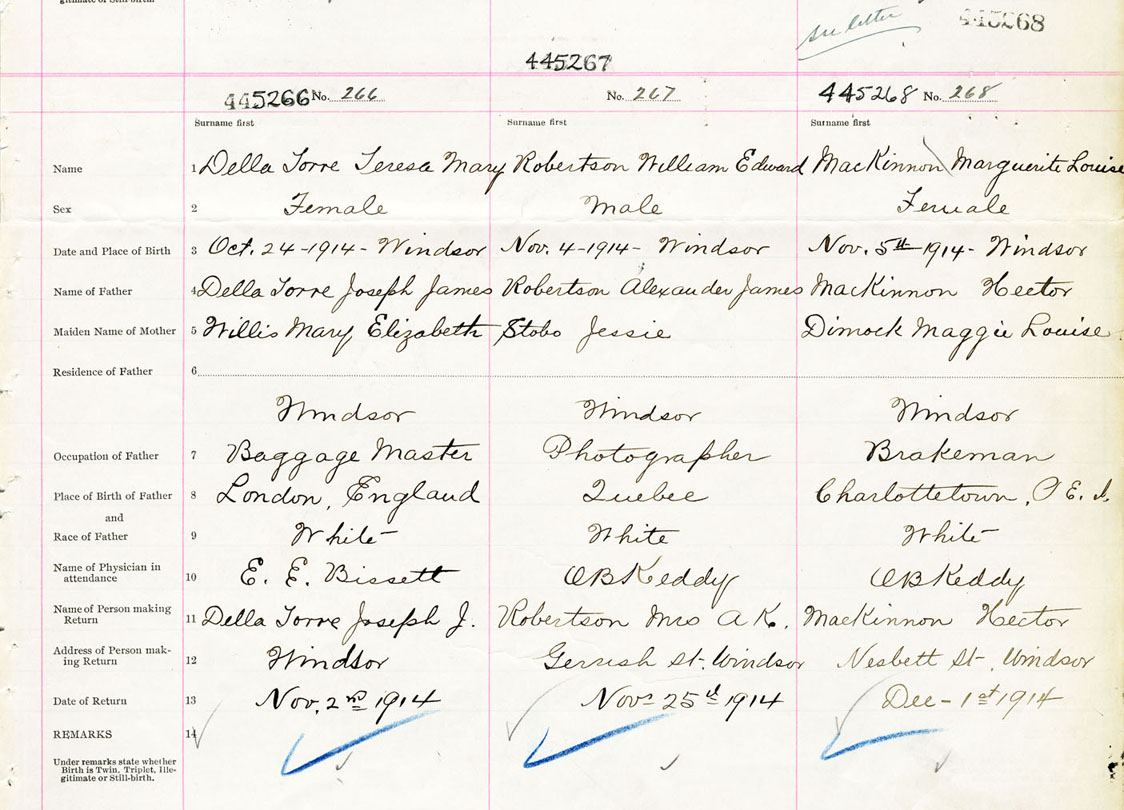 gitimate or Still-birth.
see letter 445268
445267
445266 No. 266 No. 267 445268 No. 268
Surname first Surname first Surname first
Name 1 Della Torre Teresa Mary Robertson William Edward MacKinnon Marguerite Louise
Sex 2 Female Male Female
Date and Place of Birth 3 Oct. 24-1914- Windsor Nov. 4-1914- Windsor Nov. 5th-1914- Windsor
Name of Father 4 Della Torre Joseph James Robertson Alexander James MacKinnon Hector
Maiden Name of Mother 5 Willis Mary Elizabeth Stobo Jessie Dimock Maggie Louise
Residence of Father 6
Windsor Windsor Windsor
Occupation of Father 7 Baggage Master Photographer Brakeman
Place of Birth of Father 8 London, England Quebec Charlottetown, P E. I.
and
Race of Father 9 White White White
Name of Physician in
attendance 10 E. E. Bissett OBKeddy OBKeddy
Name of Person making
Return 11 Della Torre Joseph J. Robertson Mrs A K. MacKinnon Hector
Address of Person mak-
ing Return 12 Windsor Gerrish St. Windsor Nesbett St. Windsor
Date of Return 13 Nov. 2nd 1914 Nov 25th 1914 Dec - 1st 1914
REMARKS 14
Under remarks state whether
Birth is Twin, Triplet, Ille-
gitimate or Still-birth.